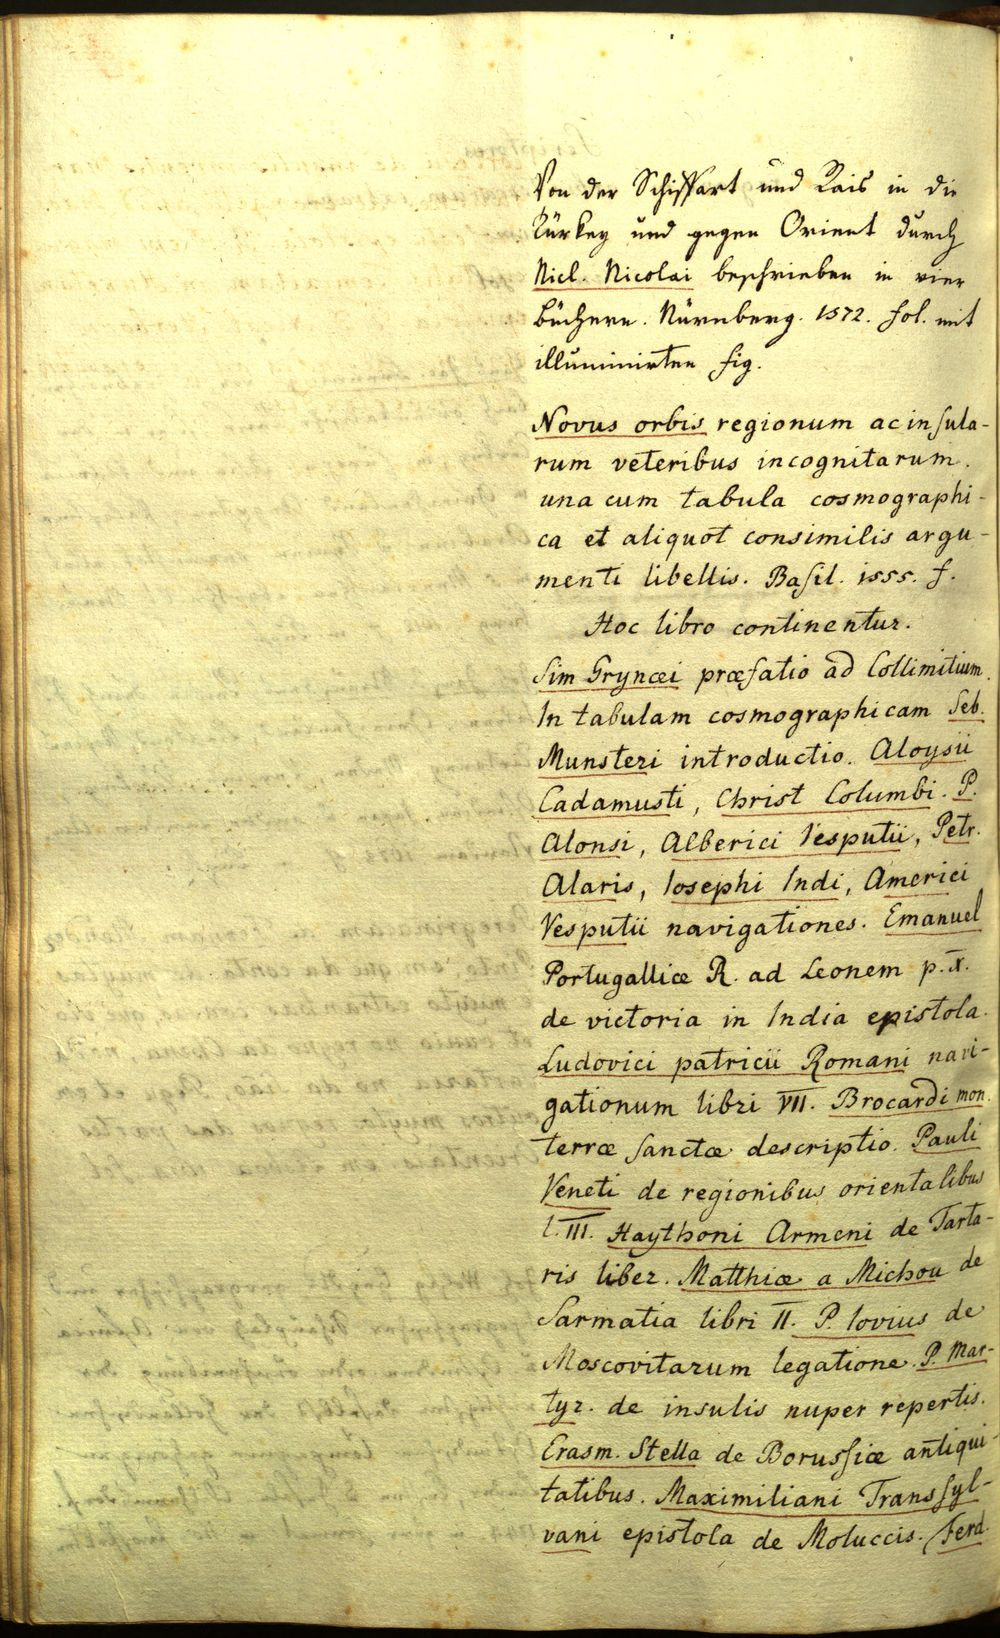 Von der Schiffart und Rais in die
Türkey und gegen Orient durch
Nicl. Nicolai beschrieben in vier
Büchern. Nürnberg. 1572. fol. mit
illuminirten fig.
Novus orbis regionum ac insula-
rum veteribus incognitarum.
una cum tabula cosmographi-
ca et aliquot consimilis argu-
menti libellis. Basil. 1555. f.
Hoc libro continentur.
Sim Grynæi præfatio ad Collimitium.
In tabulam cosmographicam Seb.
Munsteri introductio. Aloysii
Cadamusti, Christ Columbi. P.
Alonsi, Alberici Vesputii, Petr.
Alaris, Iosephi Indi, Americi
Vesputii navigationes. Emanuel
Portugalliæ R. ad Leonem p. X.
de victoria in India epistola.
Ludovici patricii Romani navi-
gationum libri VII. Brocardi mon.
terræ sanctæ descriptio. Pauli
Veneti de regionibus orientalibus
l. III. Haythoni Armeni de Tarta-
ris liber. Matthiæ a Michou de
Sarmatia libri II. P. Iovius de
Moscovitarum legatione. P. Mar-
tyr. de insulis nuper repertis.
Erasm. Stella de Borussiæ antiqui-
tatibus. Maximiliani Transsyl-
vani epistola de Moluccis. Ferd.